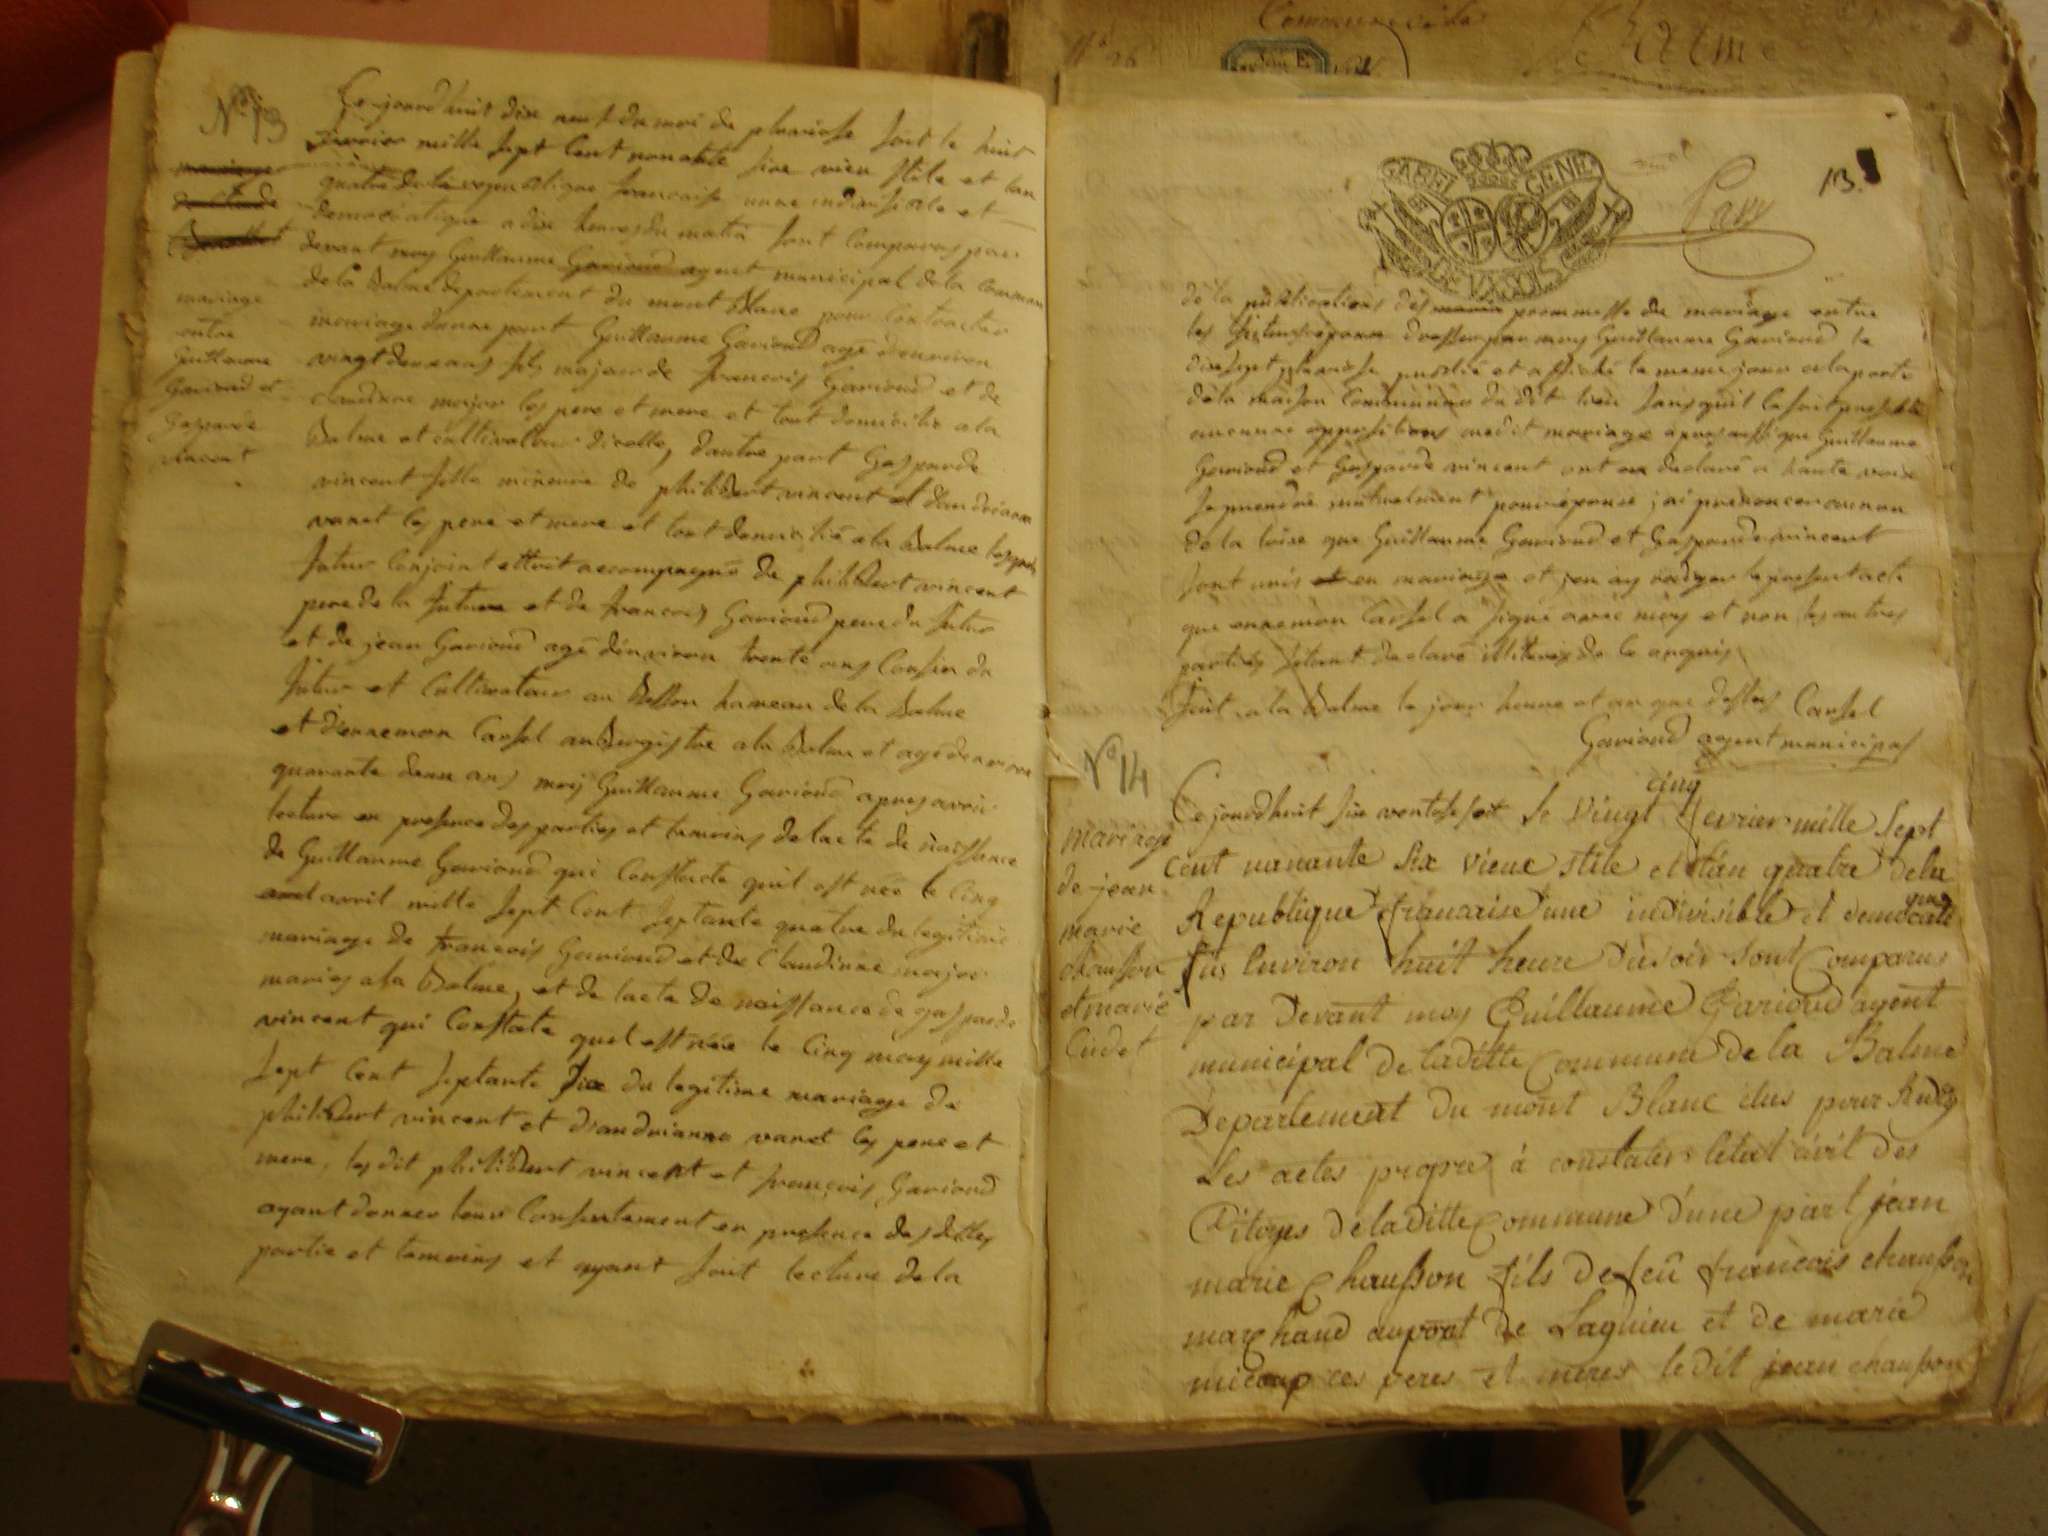 Commune de la
Balme
N° 13
mariage
entre
Guillaume
Gavioud et
Gasparde
vincent
Cejourdhuit dixe neuf du moi de pluviose sont le huit
fevrier mille sept Cent nonante sixe vieu stile et lan
quatre de la republique francaise une indivisible et
democratique a dixe heures du matin sont Comparus par
devant moy Guillaume Gavioud agent municipal de la Commune
de la Balme departement du mont Blanc pour Contracter
mariage dune part Guillaume Gavioud agé denviron
vingt deux ans fils majeur de francois Gavioud et de
claudinne major les pere et mere et tout domicilié a la
Balme et cultivateur dicelle, dautre part Gasparde
vincent fille mineure de philibert vincent et dandrianne
varet les pere et mere et tout domicilié a la Balme lesquels
futur Conjoint ettoit accompagné de philibert vincent
pere de la future et de francois Gavioud pere du futur
et de jean Gavioud agé denviron trente ans Cousin du
futur et Cultivateur au hameau de la Balme
et dennemon Carsel aubergistre a la Balme et agé denviron
quarante deux ans moy Guillaume Gavioud apres avoir
lecture en presence des parties et temoins de lacte de naissance
de Guillaume Gavioud qui Constate quil est née le Cinq
avril mille sept Cent septante quatre du legitime
mariage de francois Gavioud et de Claudinne major
maries a la Balme, et de lacte de naissance de gasparde
vincent qui Constate quel est née le Cinq may mille
sept Cent septante sixe du legitime mariage de
philibert vincent et dandrianne varet les pere et
mere, les dit philibert vincent et francois Gavioud
ayant donner leur Consentement en presence des dittes
partie et temoins et ayant fait lecture de la
13.
GABE GENE
de la publications des promesse de mariage entre
les futurs epoux dresser par moy Guillaume Gavioud le
dixe sept pluviose publié et affiché le meme jour a la porte
de la maison Commune du dit lieu sans quil la soit presenté
aucunne oppositions audit mariage apres aussi que Guillaume
Gavioud et Gasparde vincent ont declaré a haute voix
se prendre mutuelment pour epouse jai prenoncer au nom
de la loixe que Guillaume Gavioud et Gasparde vincent
sont unis en mariage et jen ay rediger le present acte
que ennemon Carsel a signé avec moy et non les autres
parties setant declaré illiteres de le arequis
fait a la Balme le jour heure et an que dessus Carsel
Gavioud agent municipal
N° 14
mariage
de jean
marie
chausson
et marie
Cudet
cinq
Cejourdhuit six ventose soit le vingt fevrier mille sept
cent nanante six vieux stile et lan quatre de la
Republique francaise une indivisible et democati
que
sus lenviron huit heure du soir sont Comparus
par Devant moy Guillaume Garioud agent
municipal de laditte Commune de la Balme
Departement du mont Blanc elus pour Rediger
Les actes propre à constater letat civit des
Citoyes de laditte Commune d'une part jean
marie Chausson fils de feu francois chausson
marchand auport de Lagnieu et de marie
micoup ces peres et meres ledit jean chausson